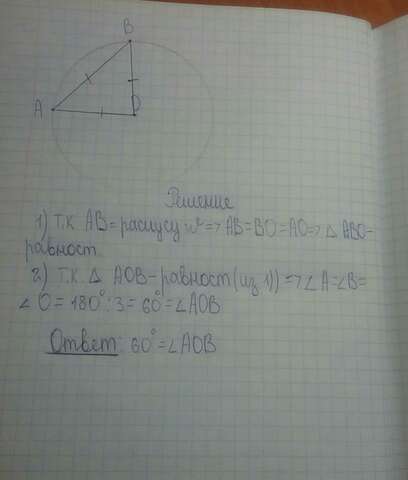 B
A
O
Решение
1) Т.К AB = радиусу => AB=BO=AO=> Δ ABO-
равност.
2) Т.К. Δ AOB-равност(из 1)) => ∠A=∠B=
∠O= 180°:3= 60°=∠AOB
Ответ: 60°=∠AOB